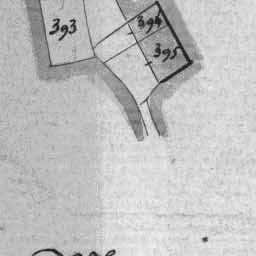 393
394
395